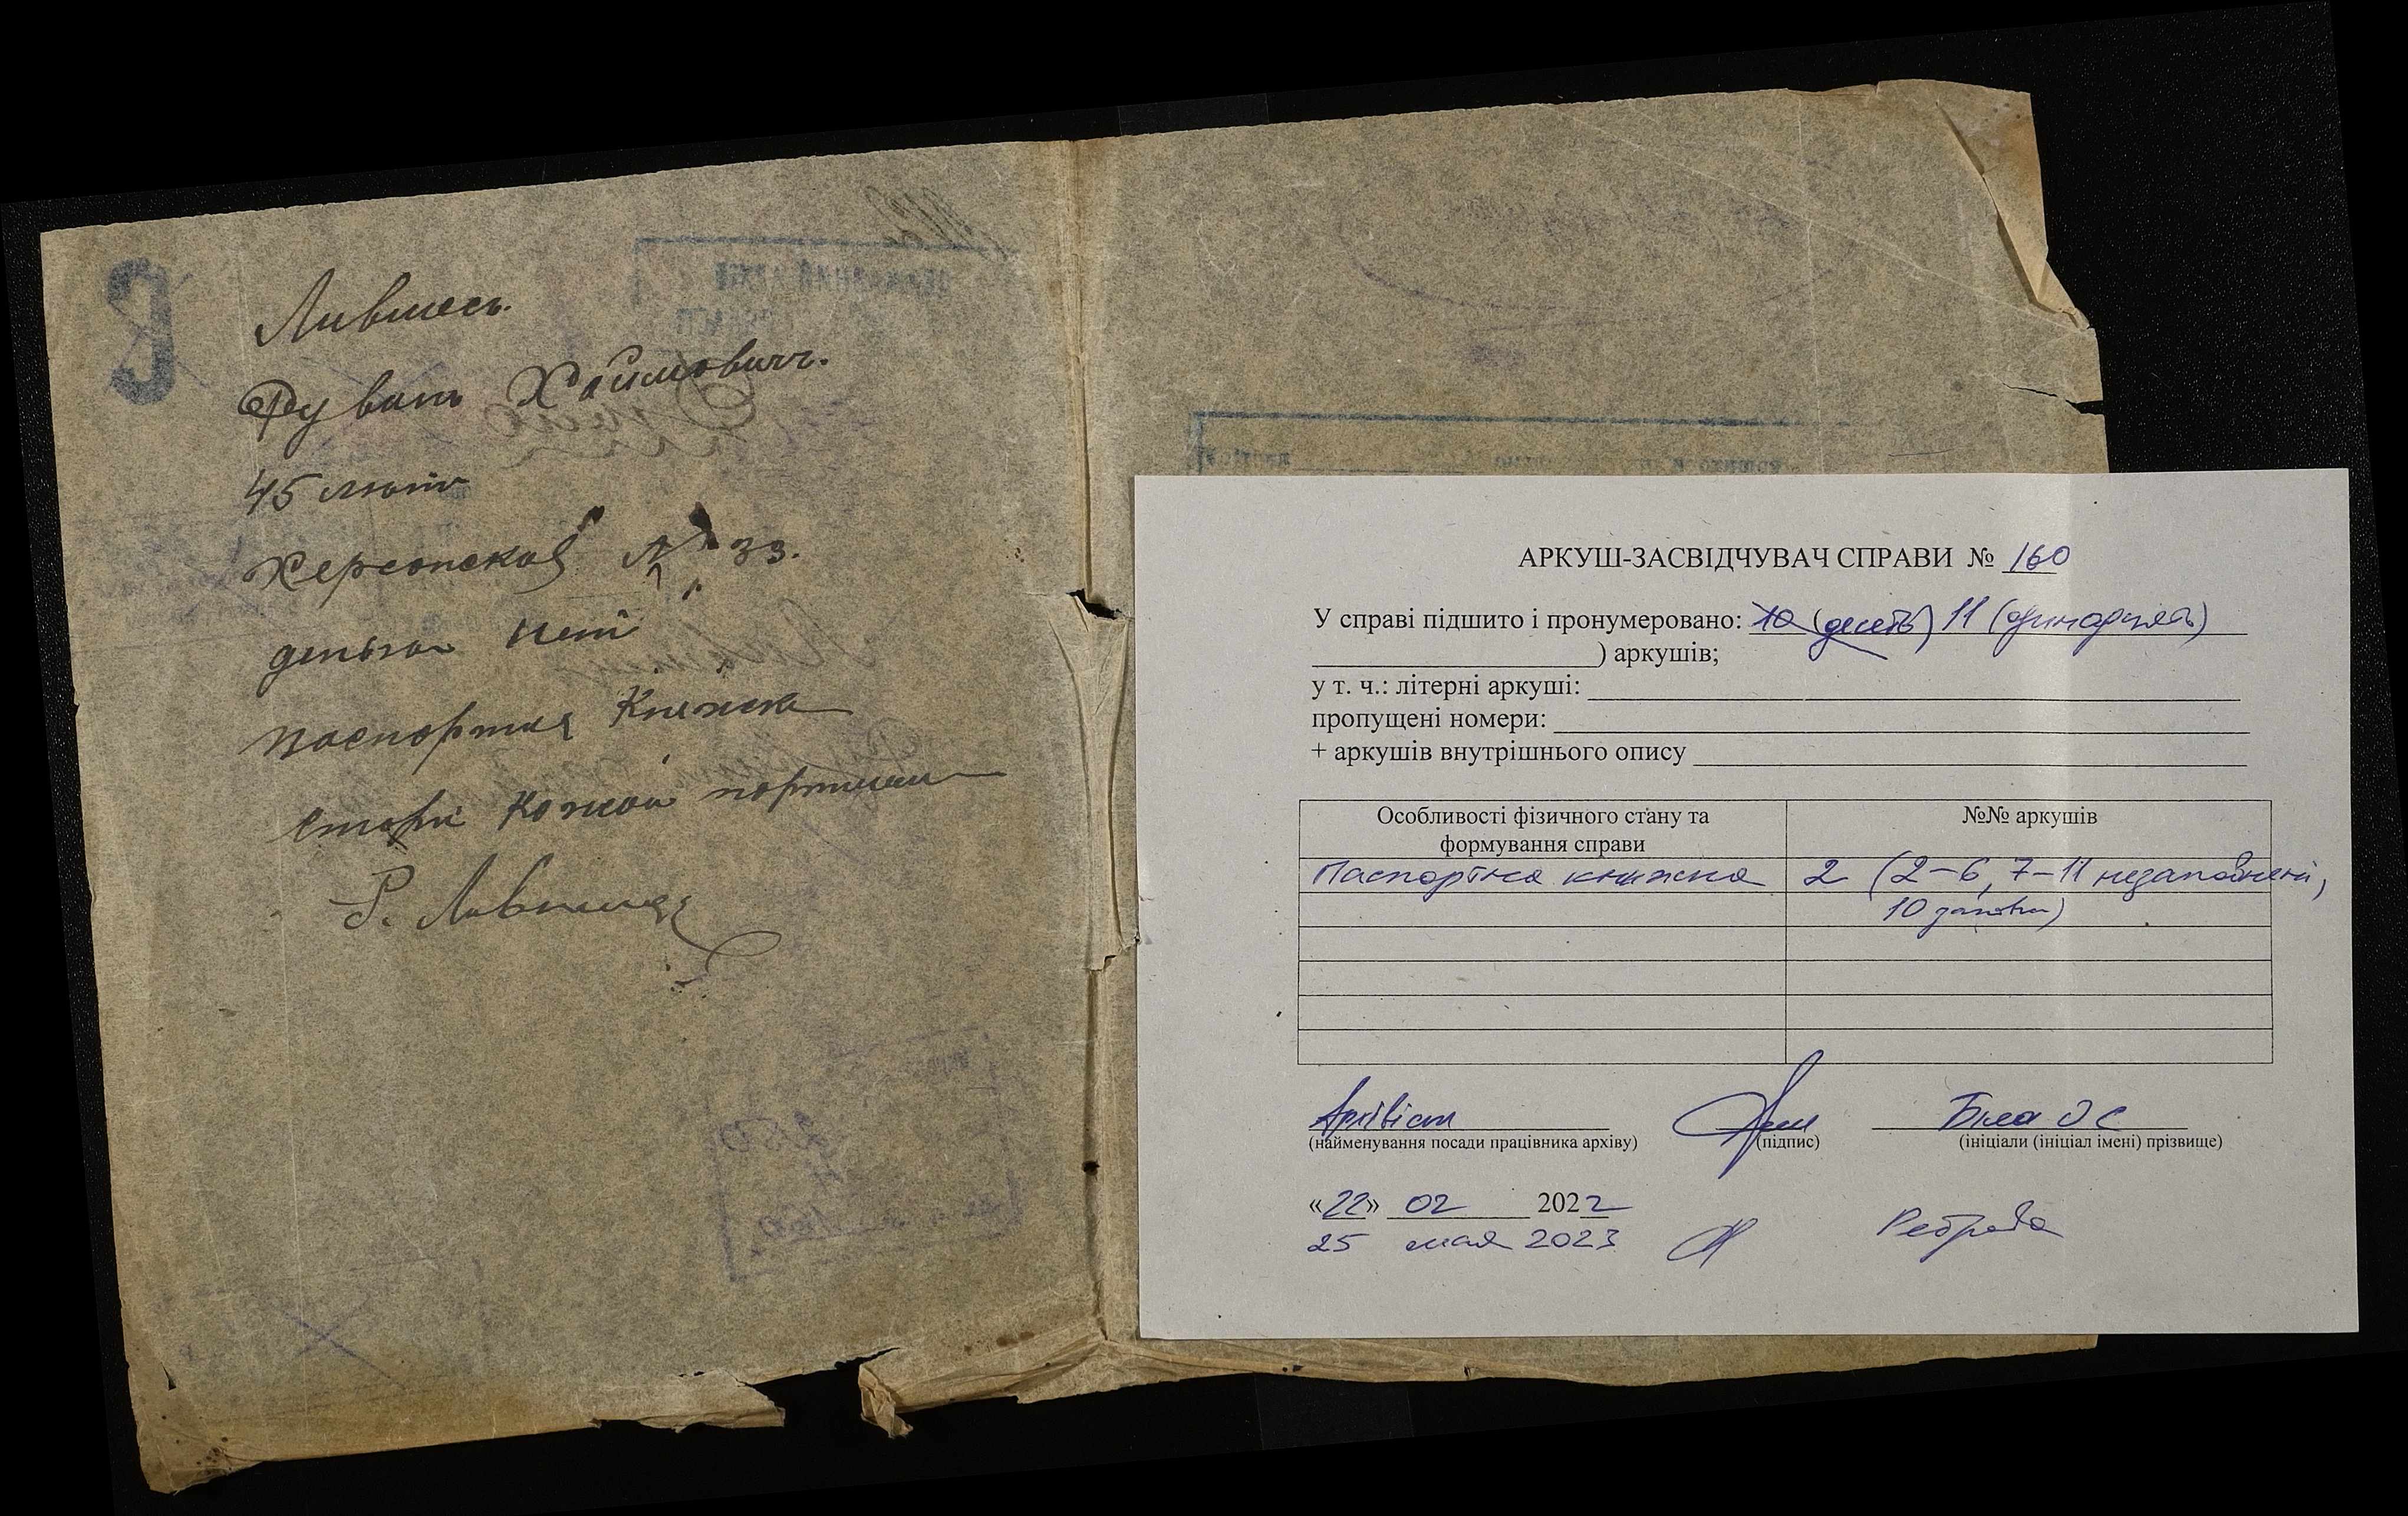 Лившесъ.
Рувинъ Хаимовичъ.
45 лютъ
Херсонская № 33.
деньги нет
паспортия Книжка
старе кожан портман
Р. Лившиц
АРКУШ-ЗАСВІДЧУВАЧ СПРАВИ № 160
У справі підшито і пронумеровано: 10 (десять) 11 (одинадцять)
) аркушів;
у т. ч.: літерні аркуші:
пропущені номери:
+ аркушів внутрішнього опису
Особливості фізичного стану та формування справи
№№ аркушів
Паспортна книжка 2 (2-6, 7-11 незаповнені,
10
Архівіст
Біла О С
(найменування посади працівника архіву) (підпис) (ініціали (ініціал імені) прізвище)
«22» 02 2022
25 мая 2023 Реброва